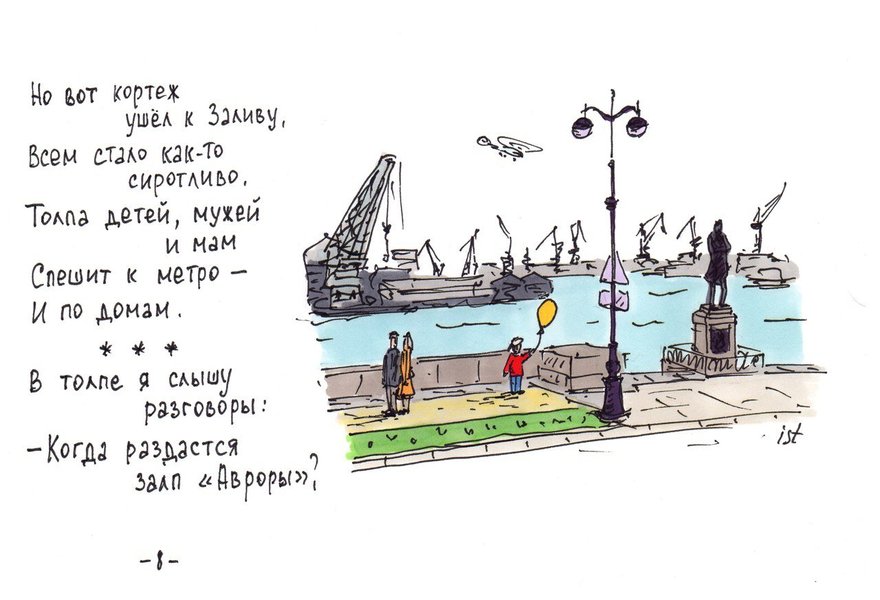 Но вот кортеж
ушёл к Заливу,
Всем стало как-то
сиротливо.
Толпа детей, мужей
и мам
Спешит к метро –
И по домам.
* * *
В толпе я слышу
разговоры:
–Когда раздастся
залп «Авроры»?
ist
–8–